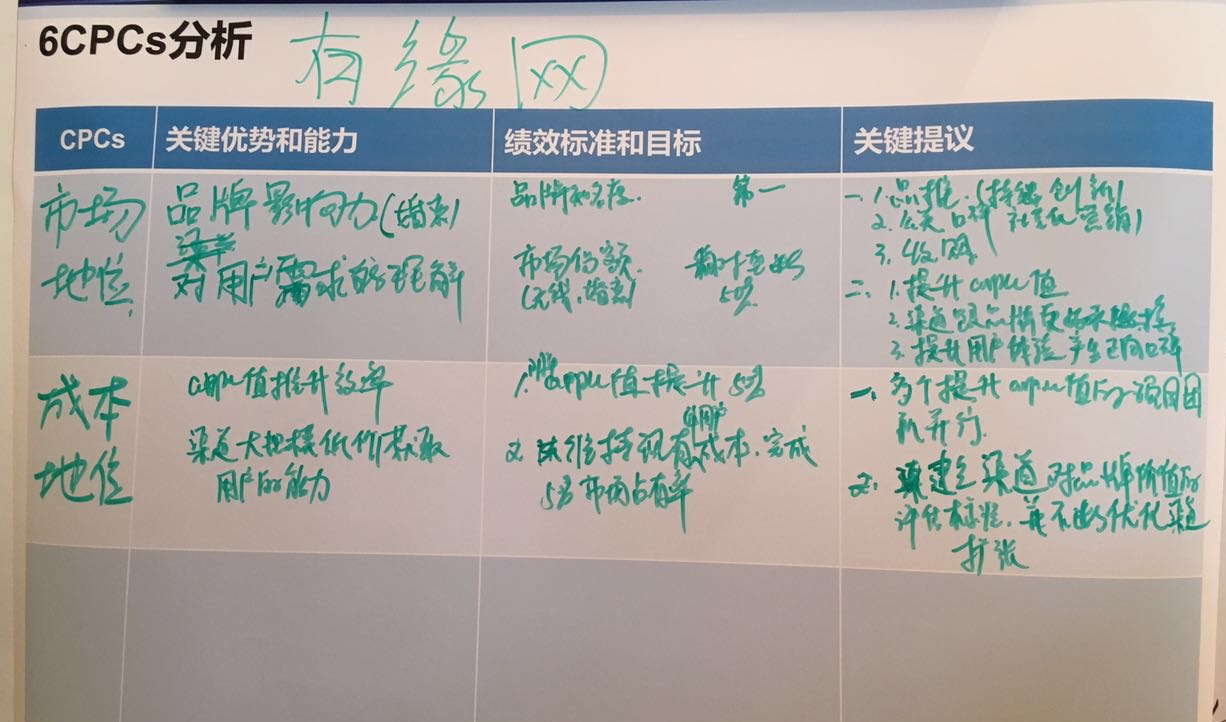 6CPCs分析
有缘网
CPCs 关键优势和能力 绩效标准和目标 关键提议
市场
地位
品牌影响力(婚恋)
对用户需求的理解
品牌知名度 第一
市场份额
(无线、婚恋)
50%
一、1.品推(持续创新)
2.公关口碑 社会化营销)
3.
二、1.提升arpu值
2.渠道跟品牌更好
3.提升用户体验产生正向口碑
成本
地位
arpu值提升效率
渠道大规模低价获取
用户的能力
1. arpu值提升5%
2. 维持现有用户成本.完成
5%市场占有率
一、多个提升arpu值的项目团
队并行.
2. 建立渠道对品牌价值的
评估标准.并不断优化渠道
扩张